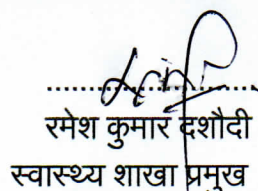 रमेश कुमार दशौदी
स्वास्थ्य शाखा प्रमुख